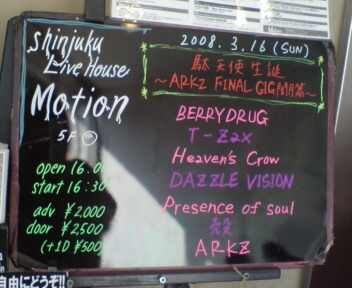 Shinjuku
Live House
Motion
5F
open 16.00
start 16:30
adv ¥2,000
door ¥2,500
(+1D ¥500)
2008.3.16 (SUN)
駄天使生誕
～ARKZ FINAL GIG
BERRYDRUG
T-Zax
Heaven's Crow
DAZZLE VISION
Presence of soul
ARKZ
自由にどうぞ!!